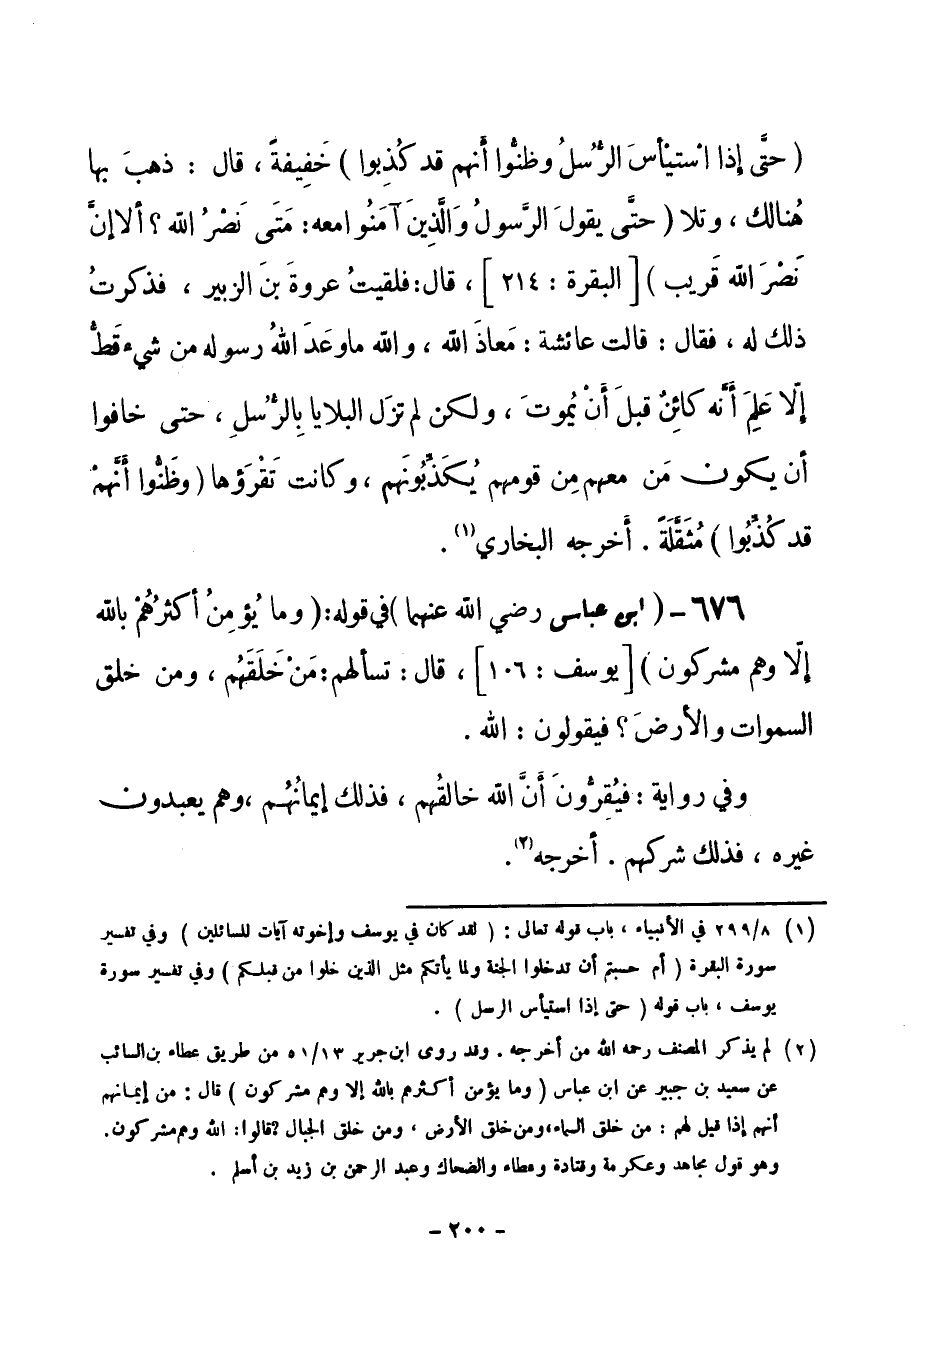 ( حتَّى إذا اسْتيْأسَ الرُّسلُ وظنُّوا أنهم قد كُذِبوا ) خَفِيفةً ، قال : ذهبَ بها
هُنالك ، وتلا ( حتَّى يقولَ الرَّسولُ وَالَّذِينَ آمَنُوا معه: مَتَى نَصْرُ الله ؟ ألا إنَّ
نَصْرَ الله قَريب ) [ البقرة : ٢١٤ ] ، قال: فلقيتُ عروةَ بنَ الزبير ، فذكرتُ
ذلك له ، فقال : قالت عائشة : مَعاذَ الله ، والله ماوعَدَ اللهُ رسوله من شيء قَطُّ
إلّا عَلِمَ أنَّه كائنٌ قبلَ أنْ يموتَ ، ولكن لم تزَل البلايا بِالرُّسلِ ، حتى خافوا
أن يكون مَن معهم مِن قومهم يُكذِّبُونَهم ، وكانت تَقْرَؤها ( وظَنُّوا أنَّهمْ
قد كُذِّبُوا ) مُثَقَّلَةً . أخرجه البخاري(١) .
٦٧٦ – ( ابن عباس رضي الله عنهما ) في قوله: ( وما يُؤمِنُ أكثرُهُمْ بالله
إلّا وهم مشركون ) [ يوسف : ١٠٦ ] ، قال : تسألهم: مَنْ خَلَقَهُم ، ومن خلق
السموات والأرضَ ؟ فيقولون : الله .
وفي رواية : فيُقِرُّونَ أنَّ الله خالقُهم ، فذلك إيمانُهُم ، وهم يعبدون
غيره ، فذلك شركهم . أخرجه(٢) .
(١) ٢٩٩/٨ في الأنبياء ، باب قوله تعالى : ( لقد كان في يوسف وإخوته آيات للسائلين ) وفي تفسير
سورة البقرة ( أم حسبتم أن تدخلوا الجنة ولما يأتكم مثل الذين خلوا من قبلكم ) وفي تفسير سورة
يوسف ، باب قوله ( حتى إذا استيأس الرسل ) .
(٢) لم يذكر المصنف رحمه الله من أخرجه . وقد روى ابن جرير ٥١/١٣ من طريق عطاء بن السائب
عن سعيد بن جبير عن ابن عباس ( وما يؤمن أكثرهم بالله إلا وهم مشركون ) قال : من إيمانهم
أنهم إذا قيل لهم : من خلق السماء، ومن خلق الأرض ، ومن خلق الجبال ؟ قالوا: الله وهم مشركون.
وهو قول مجاهد وعكرمة وقتادة وعطاء والضحاك وعبد الرحمن بن زيد بن أسلم .
– ٢٠٠ –